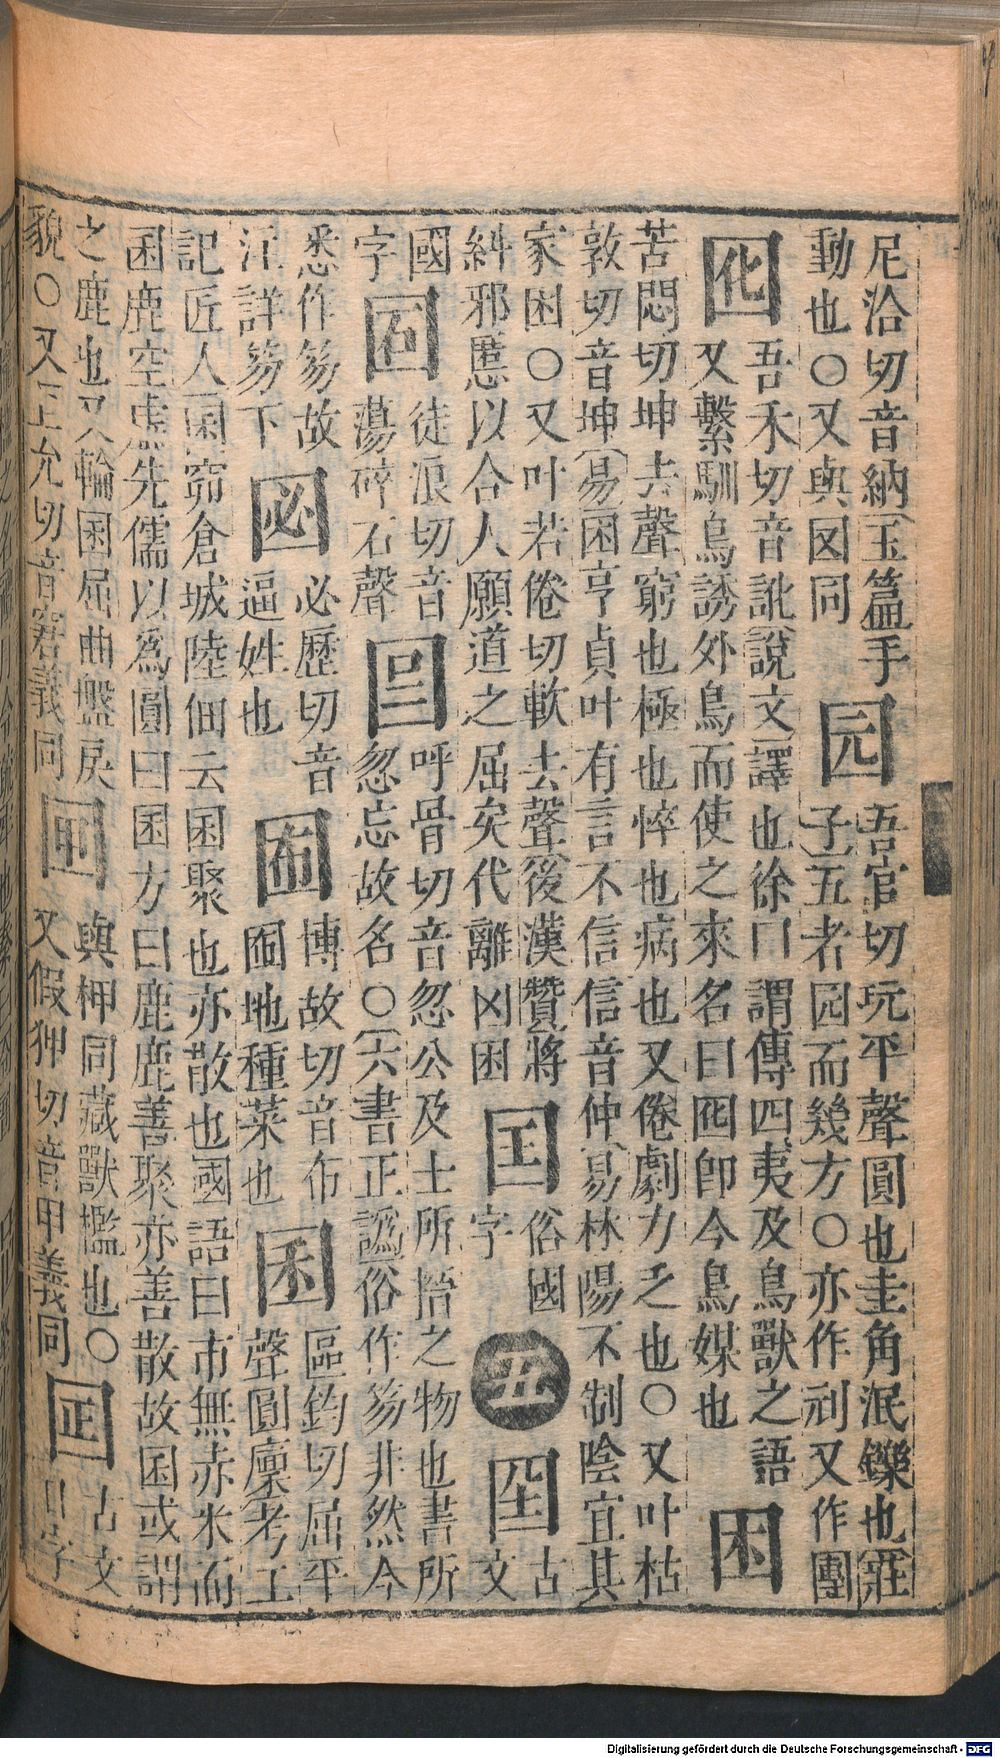 尼洽切音納玉篇手
動也○又與囡同
园
吾官切玩平聲圓也圭角泯鑠也莊
子五者园而幾方○亦作刓又作團
囮
吾禾切音訛說文譯也徐曰謂傳四夷及鳥獸之語
又繫馴鳥誘外鳥而使之來名曰囮卽今鳥媒也
困
苦悶切坤去聲窮也極也悴也病也又倦劇力乏也○又叶枯
敦切音坤易困亨貞叶有言不信信音仲易林陽不制陰宜其
家困○又叶若倦切軟去聲後漢贊將
糾邪慝以合人願道之屈矣代離凶困
囯
俗國
字
五
古
文
國
字
徒浪切音
蕩碎石聲
呼骨切音忽公及士所搢之物也書所
忽忘故名○六書正譌俗作笏非然今
悉作笏故
江詳笏下
必歷切音
逼姓也
博故切音布
地種菜也
囷
區鈞切屈平
聲圓廩考工
記匠人囷窌倉城陸佃云囷聚也亦散也國語曰市無赤米而
囷鹿空虛先儒以爲圓曰囷方曰鹿鹿善聚亦善散故囷或謂
之鹿也又輪囷屈曲盤戾
貌○又正允切音窘義同
與柙同藏獸檻也○
又假狎切音甲義同
古文
字
Digitalisierung gefördert durch die Deutsche Forschungsgemeinschaft - DFG